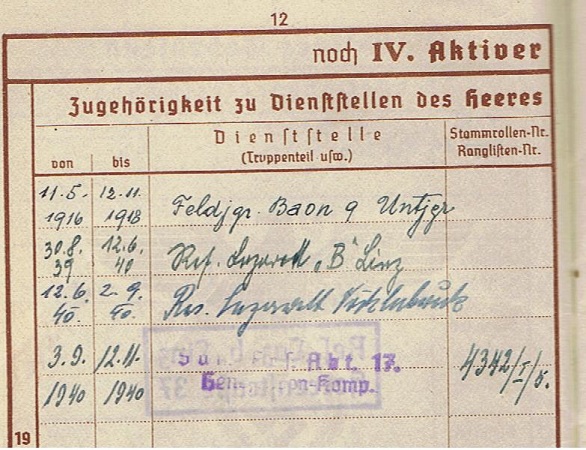 12
noch IV. Aktiver
Zugehörigkeit zu Dienststellen des Heeres
von bis Dienststelle (Truppenteil usw.) Stammrollen-Nr. Ranglisten-Nr.
11.5. 1916 12.11. 1918 Feldjgr. Baon 9 Untjgr
30.8. 39 12.6. 40 Res. Lazarett „B" Linz
12.6. 40 2.9. 40. Res. Lazarett
3.9. 1940 12.11. 1940 Abt. 17. -Komp. 4342/I/
19